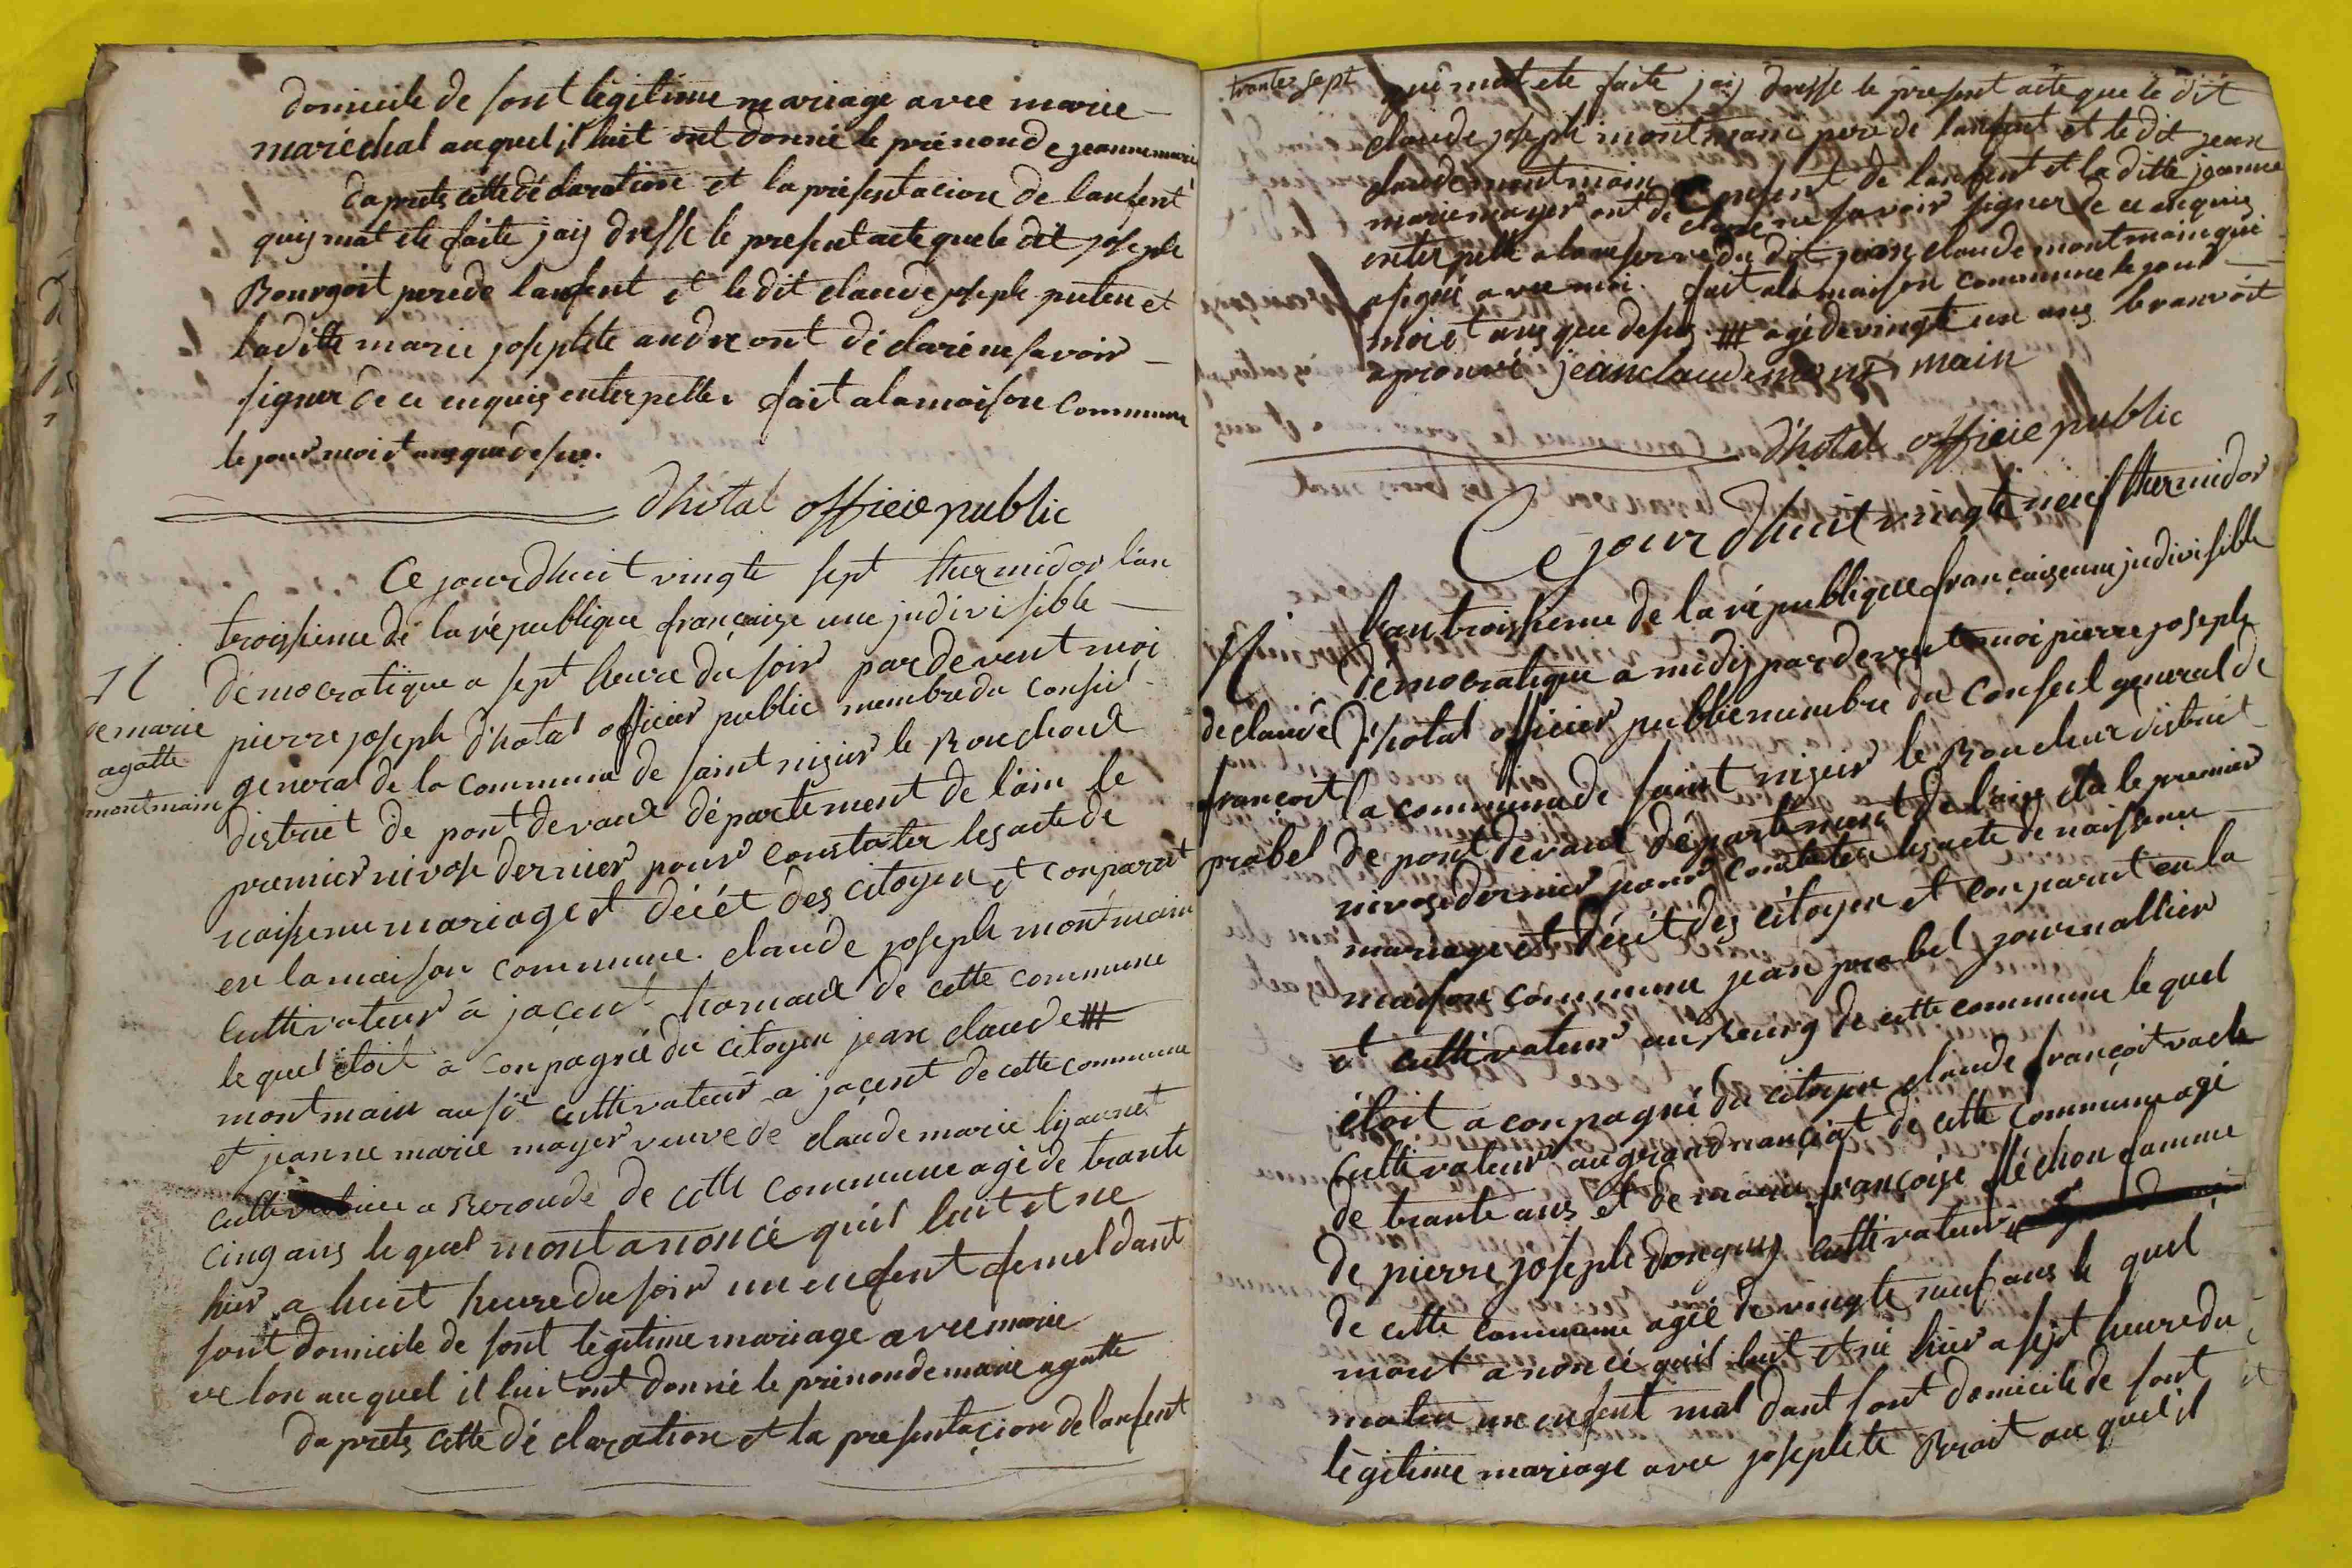 domicile de sont légitime mariage avec marie
maréchal auquel il luit ont donné le prénond e jeanne marie
daprets cette déclaration et la présentacion de lanfent
quiy mat ete faite jaiy dresse le present acte que le dit joseph
Bourgoit pere de lanfent et le dit claude joseph puten et
laditte marie josephte andre ont déclaré ne savoir
signer de ce enquis enterpelle. fait a la maison commune
le jour moi et ans que desus.
dhotal officie public
Ce jourdhuit vingte sept thermidor lan
troisieme de la république françaize une jndivisible
démocratique a sept heure du soir pardevent moi
pierre joseph d'hotal officier public membre du conseil
general de la commune de saint nizier le Bouchoux
district de pont devaux département de lain le
premier nivose dernier pour constater les acte de
naissence mariage et décét des citoyen et conparut
en la maison commune. claude joseph montmain
Cultivateur a jacent hamaux de cette commune
le quel étoit a conpagné du citoyen jean claude #
montmain ausit cultivateur a jacent de cette commune
et jeanne marie mayer veuve de claude marie lijaunet
a Beroude de cette commune agé de trante
cinq ans le quel mont anoncé quil luit et ne
hier a huit heure du soir un enfent femel dant
sont domicile de sont légitime mariage avec marie
velon auquel il luit ont donné le prénon de marie agatte
daprets cette dé claration et la presentacion de lanfent
N
de marie
agatte
montmain
trante sept
qui mat ete faite jaiy dresse le présent acte que le dit
claude joseph montmain pere de lanfent et le dit jean
claude montmain de lanfent et la ditte jeanne
marie mayer ont de claré ne savoir signer de ce enquis
enterpellé a la reserve du dit jean claude montmain qui
a signé avec moi. fait a la maison commune le jour
moi et ans que desus # agé de vingte un ans le ranvoit
aprouvé jean claude mont main
d'hotal officie public
Ce jour dhuit vingte neuf thermidor
lan troisieme de la république françaize une jndivisible
démocratique a midiy pardevent moi pierre joseph
d'hotal officier public membre du Conseil general de
la commune de saint nizier le Bouchoux district
de pont devaux département de lain élu le premier
nivose dernier pour constater les acte de naissence
mariage et décét des citoyen et conparut en la
maison commune jean probel journallier
et cultivateur au Bourg de cette commune le quel
étoit a conpagné du citoyen claude françoit vack
Cultivateur au grand nançiat de cette commune agé
de trante ans et de marie françoize fléchon famme
de pierre joseph donguy cultivateur
de cette commune agéé de vingte neuf ans le quel
mont a noncé quil luit et né hier a sept heure du
matin un enfent mal dant sont domicile de sont
légitime mariage avec josephte Broit au quel il
N
de claude
françoit
probel